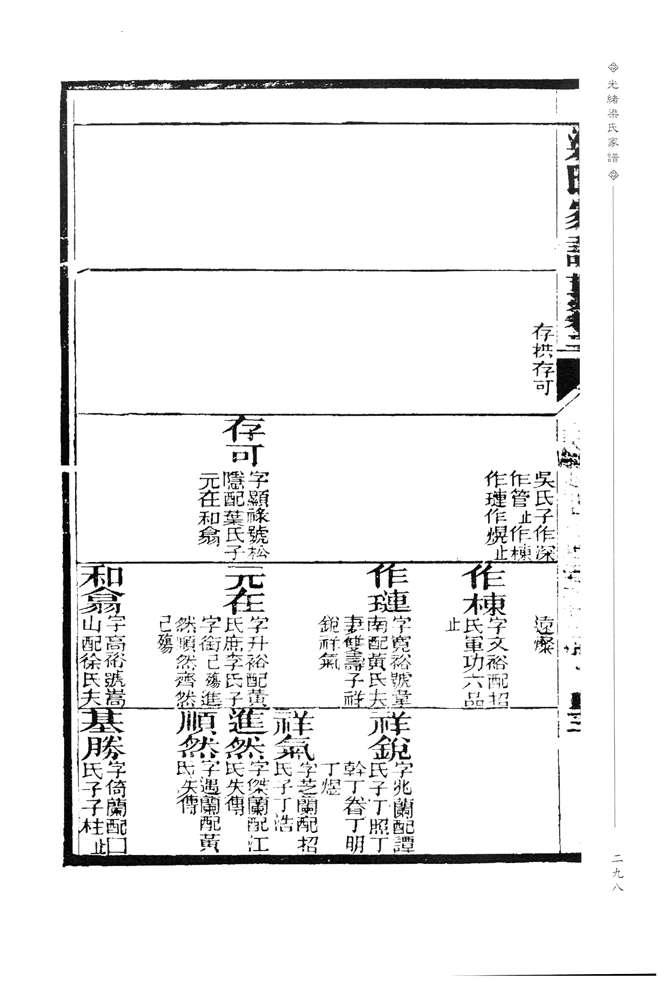 光緒梁氏家譜
二九八
存拱存可
吳氏子作深
作管止作棟
作璉作焜止
存可
字顯祿號松
隱配葉氏子
元在和翕
遠燦
作棟
字文裕配招
氏軍功六品
止
作璉
字寬裕號堂
南配黃氏夫
妻雙壽子祥
銳祥氣
元在
字升裕配黃
氏庶李氏子
字銜已殤進
然順然齊然
已殤
和翕
字高裕號嵩
山配徐氏夫
祥銳
字兆蘭配譚
氏子丁照丁
幹丁眷丁明
丁煜
祥氣
字芝蘭配招
氏子丁浩
進然
字傑蘭配江
氏失傳
順然
字遇蘭配黃
氏失傳
基勝
字倚蘭配口
氏子子柱止